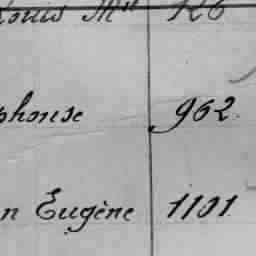 Louis Mel 126
phonse 962
n Eugène 1101